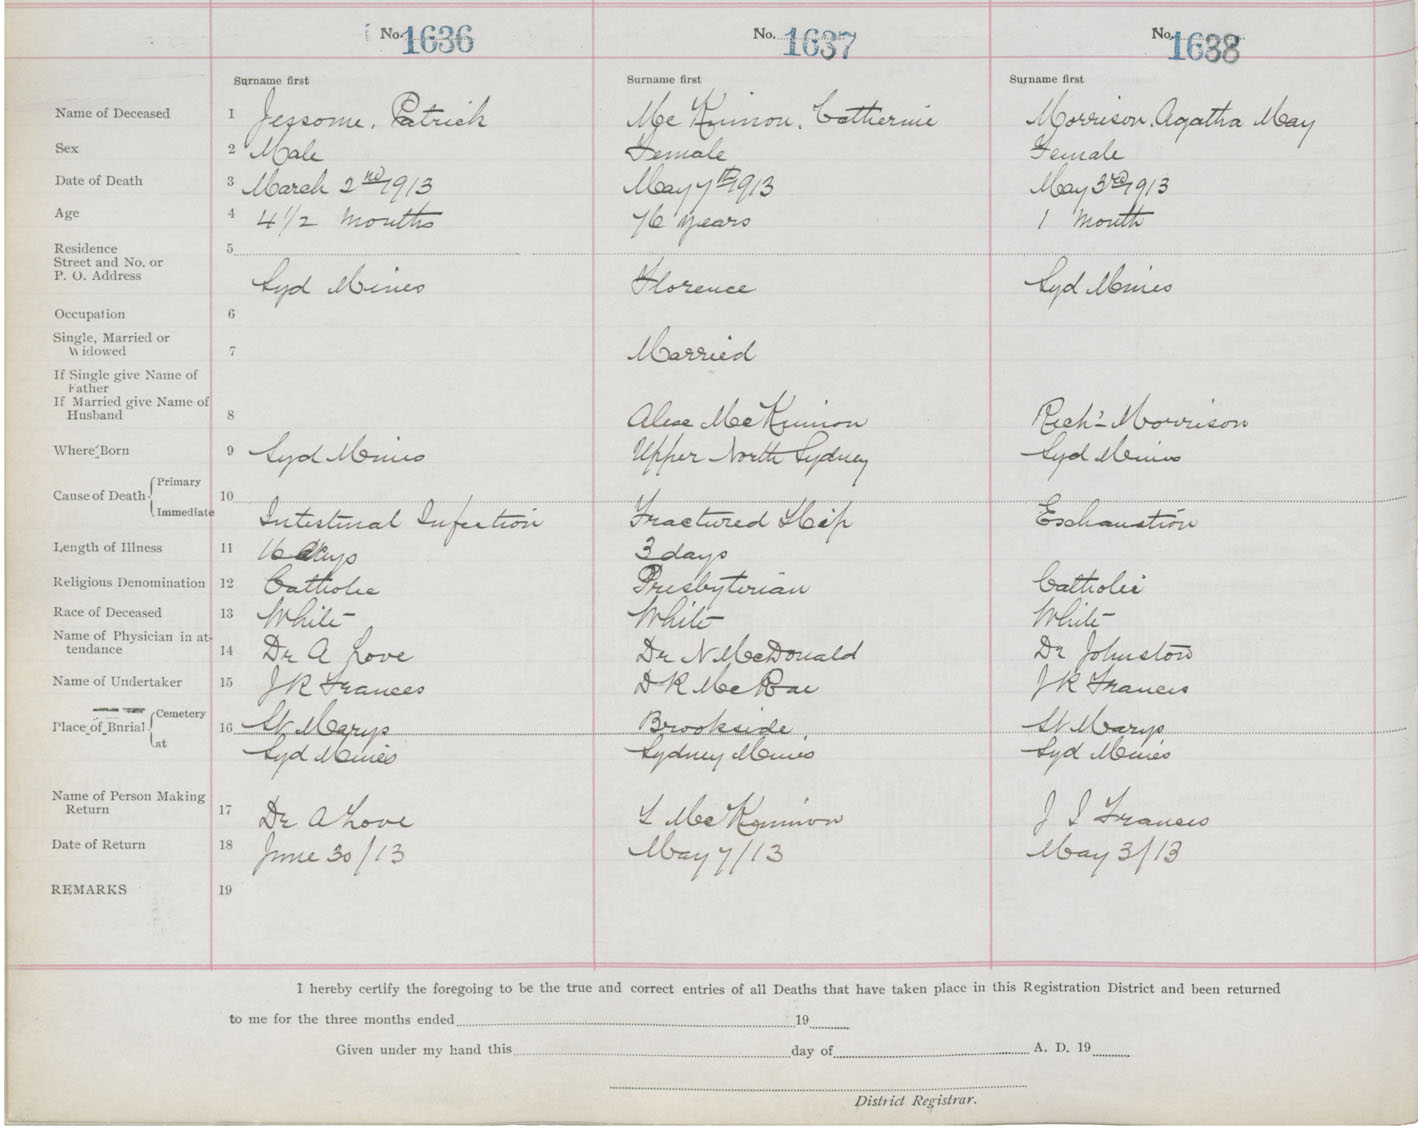 No. 1636 No. 1637 No. 1638
Surname first Surname first Surname first
Name of Deceased 1 Jessome, Patrick Mc Kinnon, Catherine Morrison, Agatha May
Sex 2 Male Female Female
Date of Death 3 March 2nd 1913 May 7th 1913 May 3rd 1913
Age 4 4 1/2 months 76 years 1 month
Residence 5
Street and No. or
P. O. Address Syd Mines Florence Syd Mines
Occupation 6
Single, Married or
Widowed 7 Married
If Single give Name of
Father
If Married give Name of
Husband 8 Alex McKinnon Richd Morrison
Where Born 9 Syd Mines Upper North Sydney Syd Mines
Cause of Death Primary 10
Immediate Intestinal Infection Fractured Hip Exhaustion
Length of Illness 11 16 days 3 days
Religious Denomination 12 Catholic Presbyterian Catholic
Race of Deceased 13 White White White
Name of Physician in at-
tendance 14 Dr A Love Dr N McDonald Dr Johnston
Name of Undertaker 15 J R Frances D R McRae J R Francis
Place of Burial Cemetery 16 St Marys Brookside St Marys
at Syd Mines Sydney Mines Syd Mines
Name of Person Making
Return 17 Dr A Love L McKinnon J J Francis
Date of Return 18 June 30/13 May 7/13 May 3/13
REMARKS 19
I hereby certify the foregoing to be the true and correct entries of all Deaths that have taken place in this Registration District and been returned
to me for the three months ended 19
Given under my hand this day of A. D. 19
District Registrar.